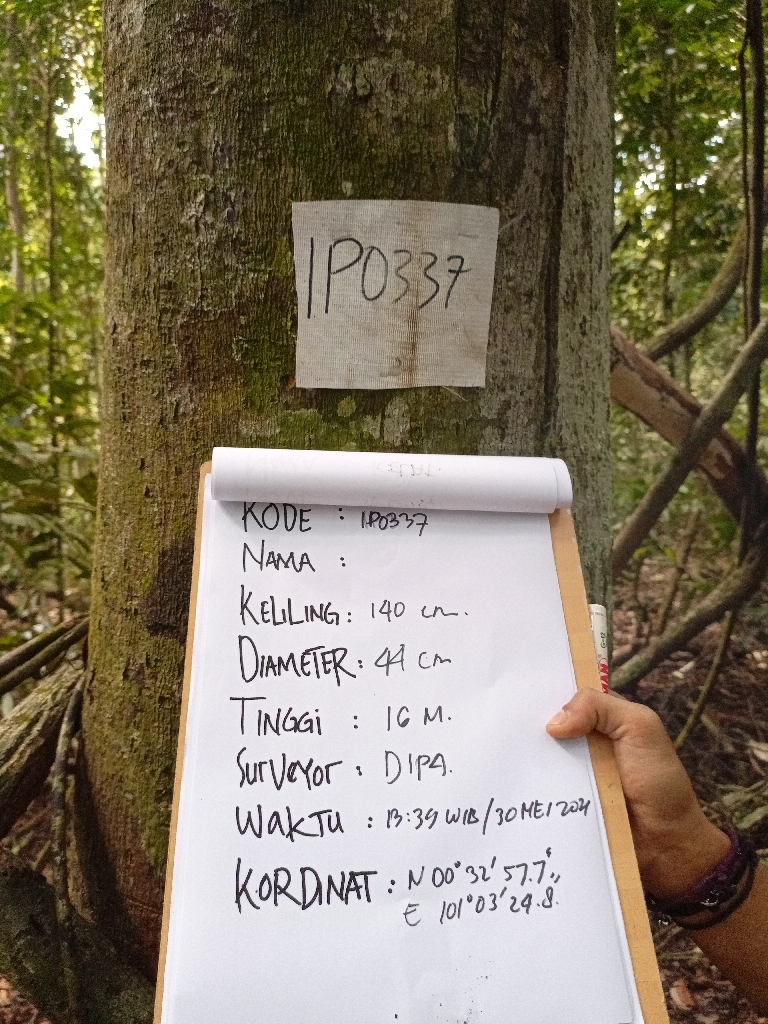 IP0337
KODE : IP0337
NAMA :
KELILING : 140 cm.
DIAMETER : 44 cm
TINGGI : 16 M.
SurVeyor : DIPA.
WAKTU : 13:39 WIB/30 MEI 2021
KORDINAT : N 00°32'57.7"
E 101°03'24.8.